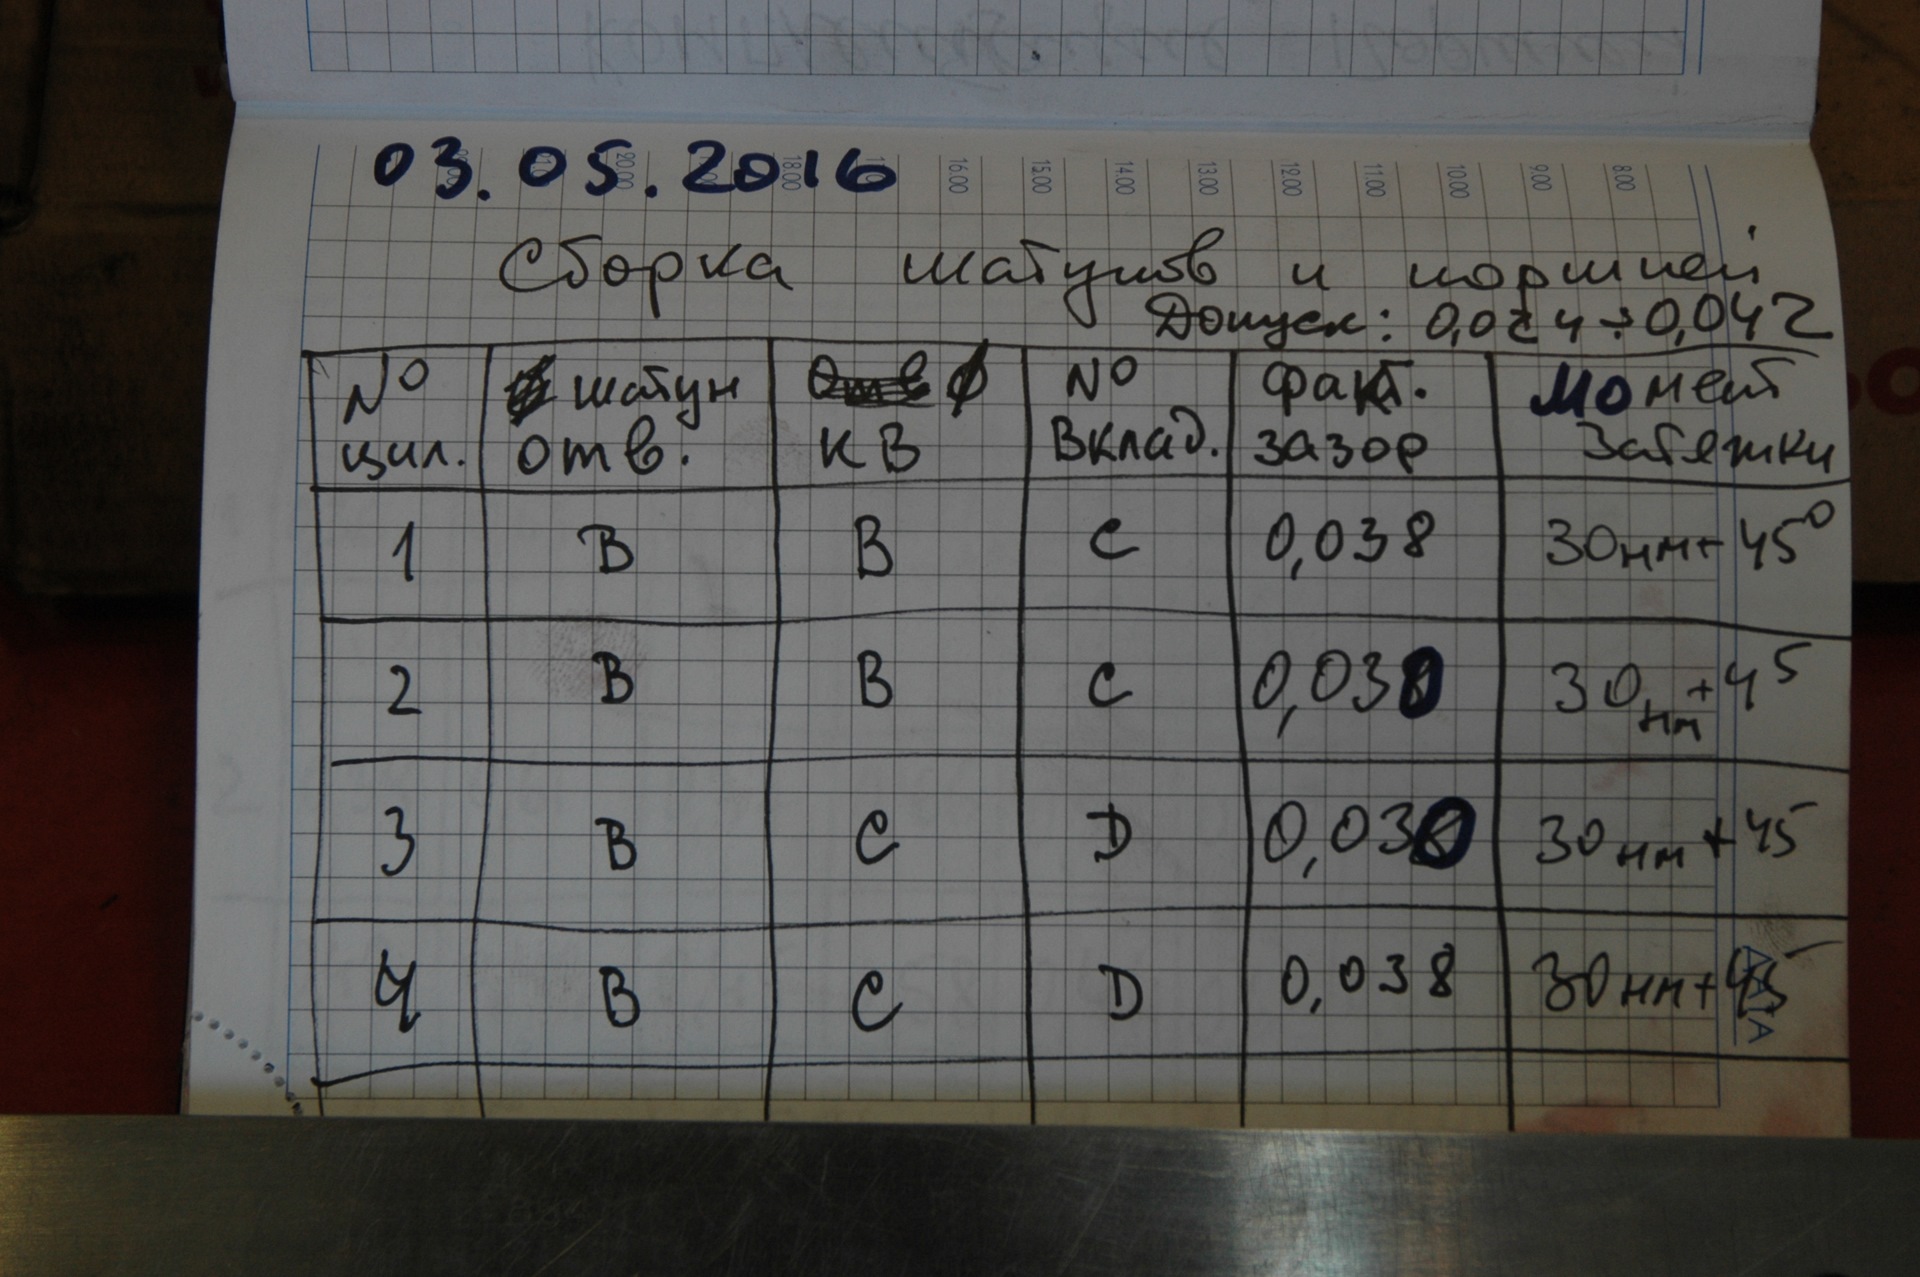 03.05.2016
20.00 18.00 16.00 15.00 14.00 13.00 12.00 11.00 10.00 9.00 8.00
Сборка шатунов и поршней
Допуск: 0,024÷0,042
№ шатун ϕ № Факт. Момент
цил. отв. КВ Вклад. зазор Затяжки
1 B B C 0,038 30нм+45°
2 B B C 0,038 30нм+45
3 B C D 0,030 30нм+45
4 B C D 0,038 30нм+45
ДАТА